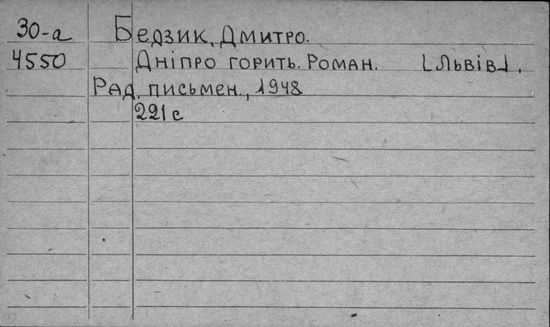 30-а Бедзик, Дмитро.
4550 Дніпро горить. Роман. [Львів].
Рад. письмен., 1948
221 с